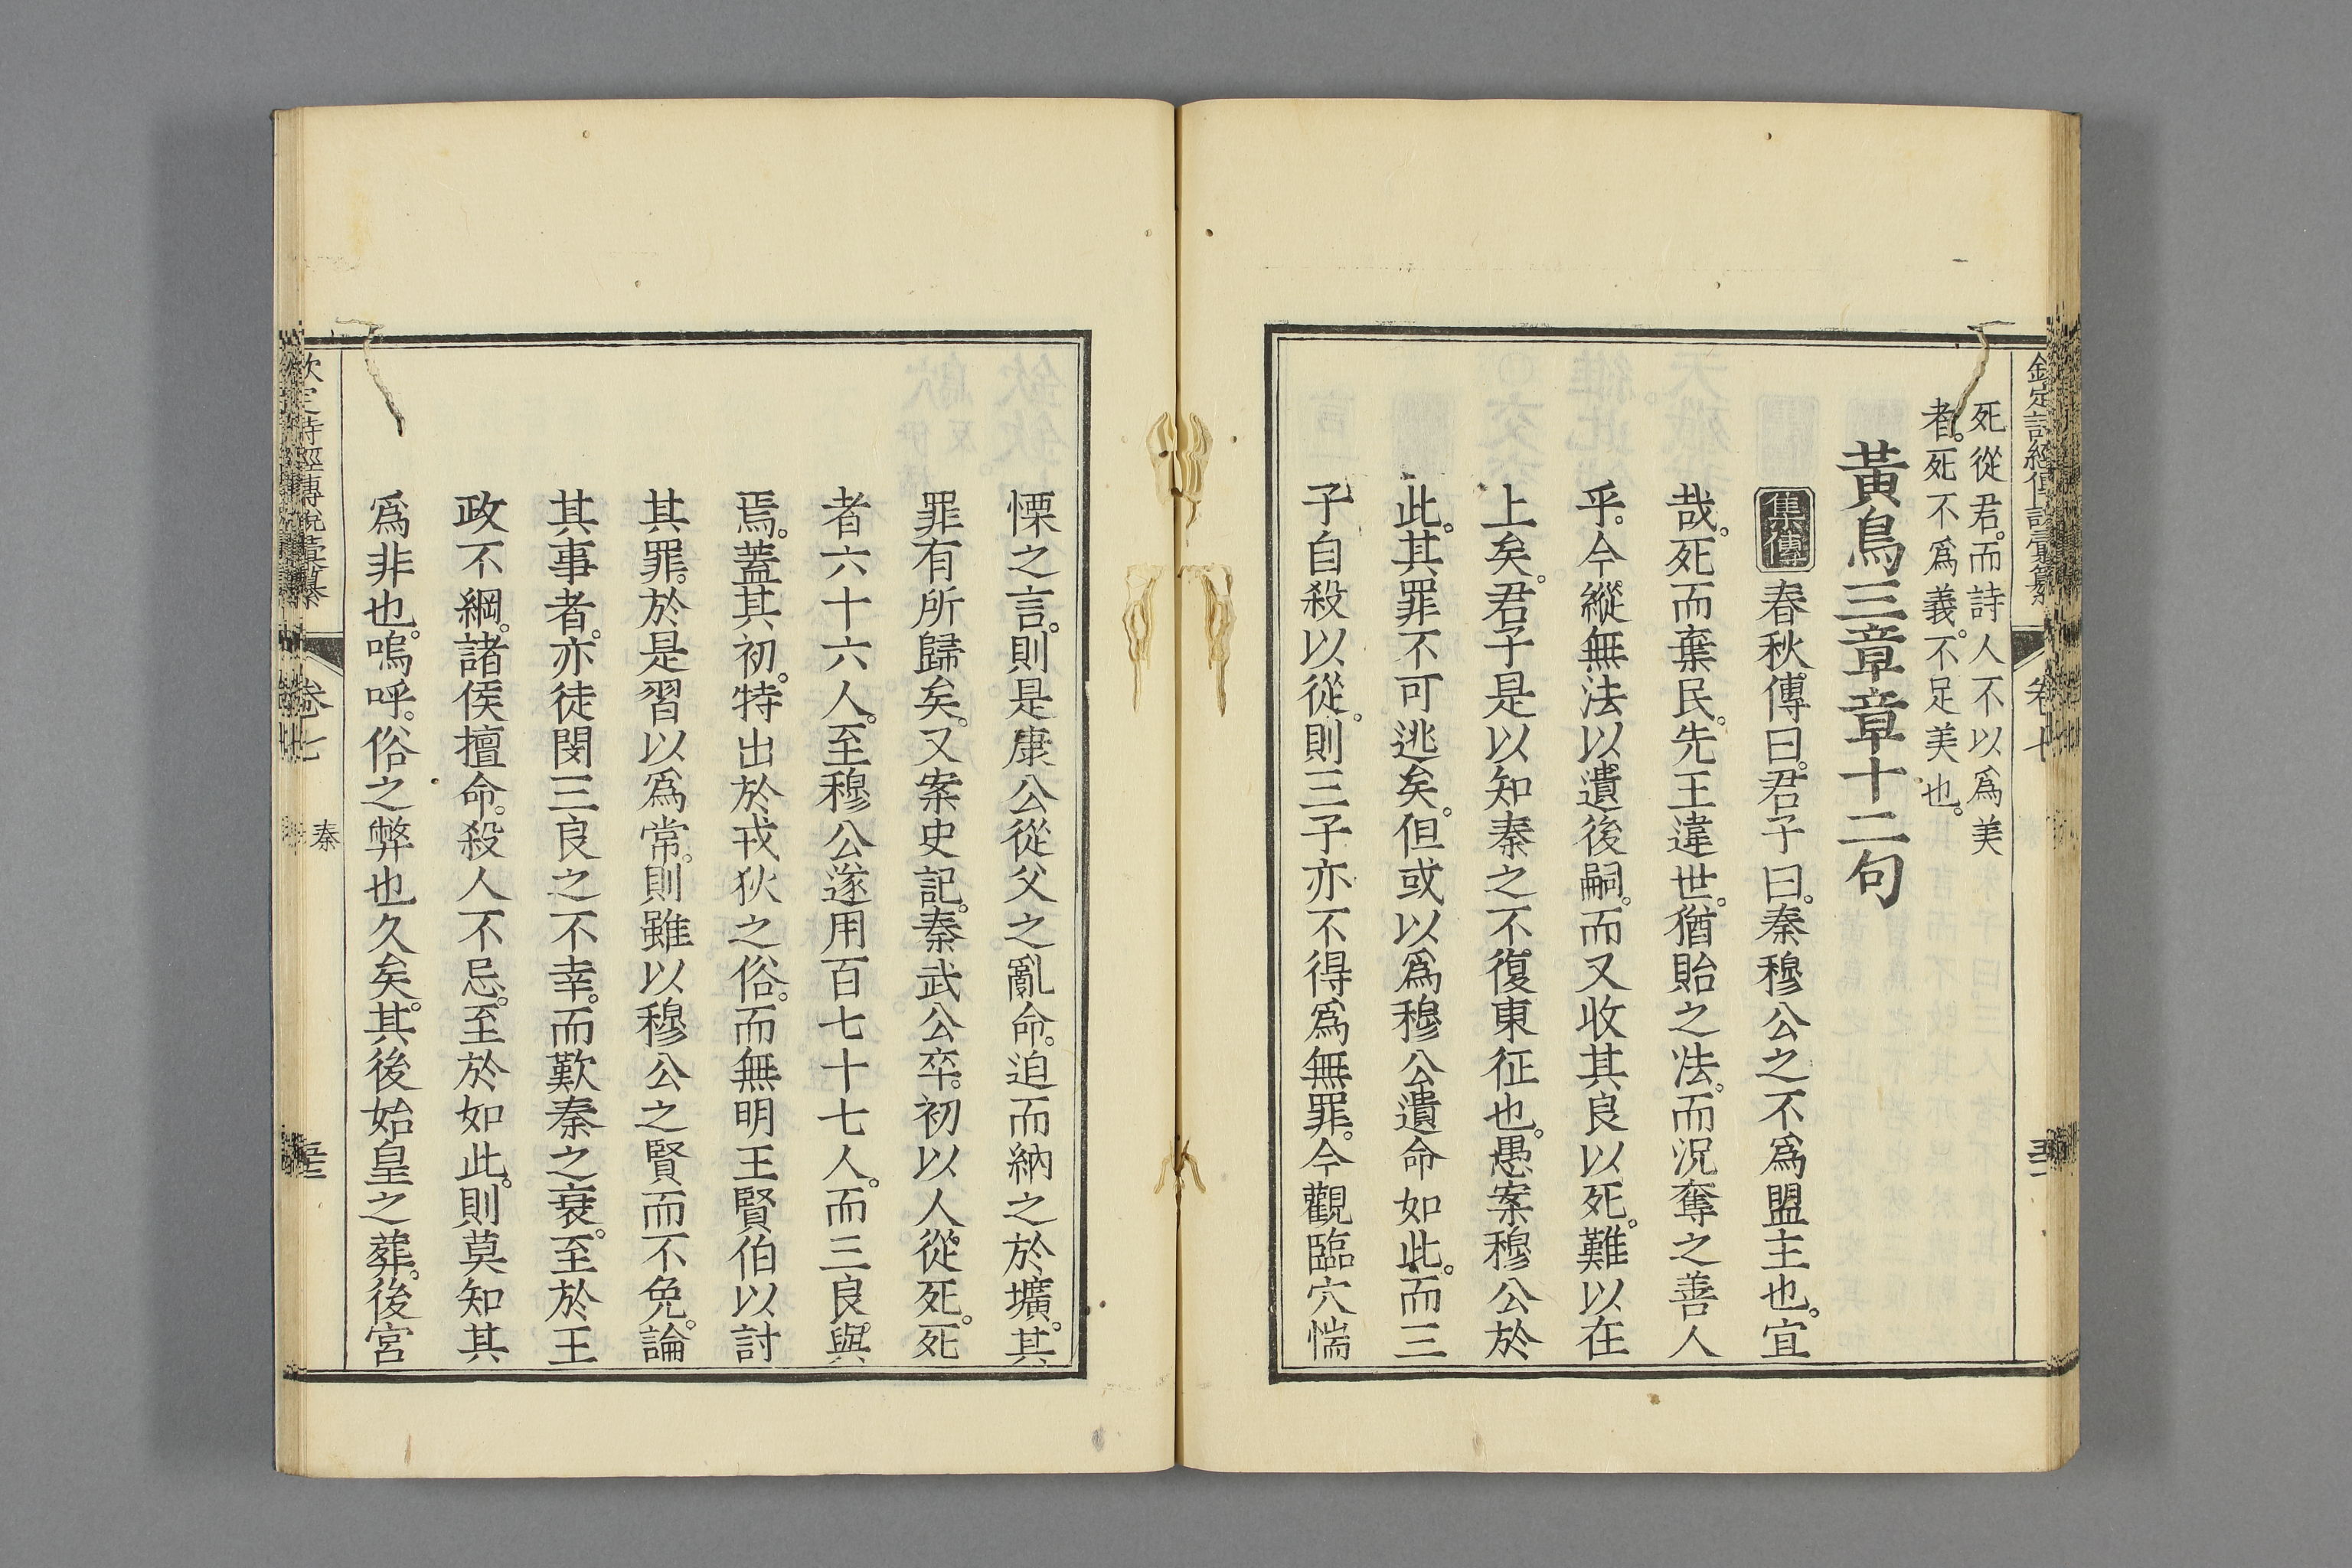 死從君。而詩人不以爲美
者。死不爲義。不足美也。
黃鳥三章章十二句
集傳 春秋傳曰。君子曰。秦穆公之不爲盟主也。宜
哉。死而棄民。先王違世。猶貽之法。而況奪之善人
乎。今縱無法以遺後嗣。而又收其良以死。難以在
上矣。君子是以知秦之不復東征也。愚案穆公於
此。其罪不可逃矣。但或以爲穆公遺命如此。而三
子自殺以從。則三子亦不得爲無罪。今觀臨穴惴
慄之言。則是康公從父之亂命。迫而納之於壙。其
罪有所歸矣。又案史記。秦武公卒。初以人從死。死
者六十六人。至穆公遂用百七十七人。而三良與
焉。蓋其初。特出於戎狄之俗。而無明王賢伯以討
其罪。於是習以爲常。則雖以穆公之賢而不免。論
其事者。亦徒閔三良之不幸。而歎秦之衰。至於王
政不綱。諸侯擅命。殺人不忌。至於如此。則莫知其
爲非也。嗚呼。俗之弊也久矣。其後始皇之葬。後宮
欽定詩經傳說彙纂
卷七
秦